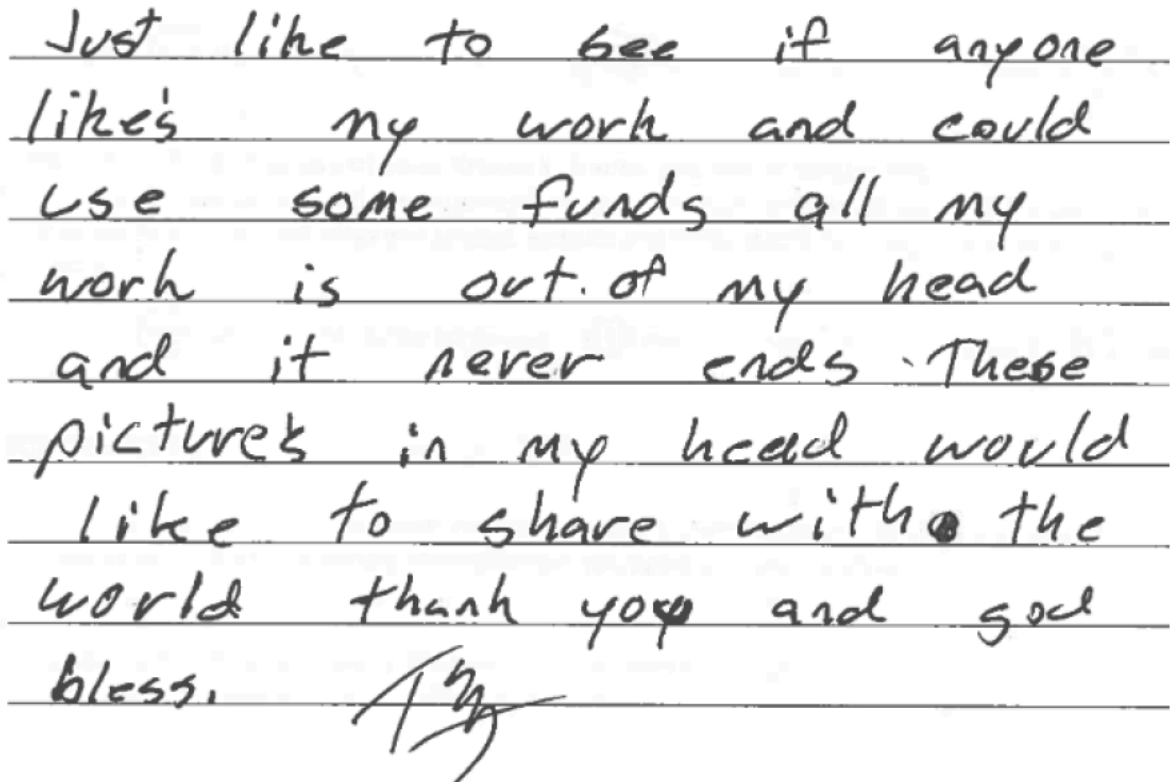 Just like to see if anyone
like's my work and could
use some funds all my
work is out. of my head
and it never ends. These
pictures in my head would
like to share with the
world thank you and god
bless.